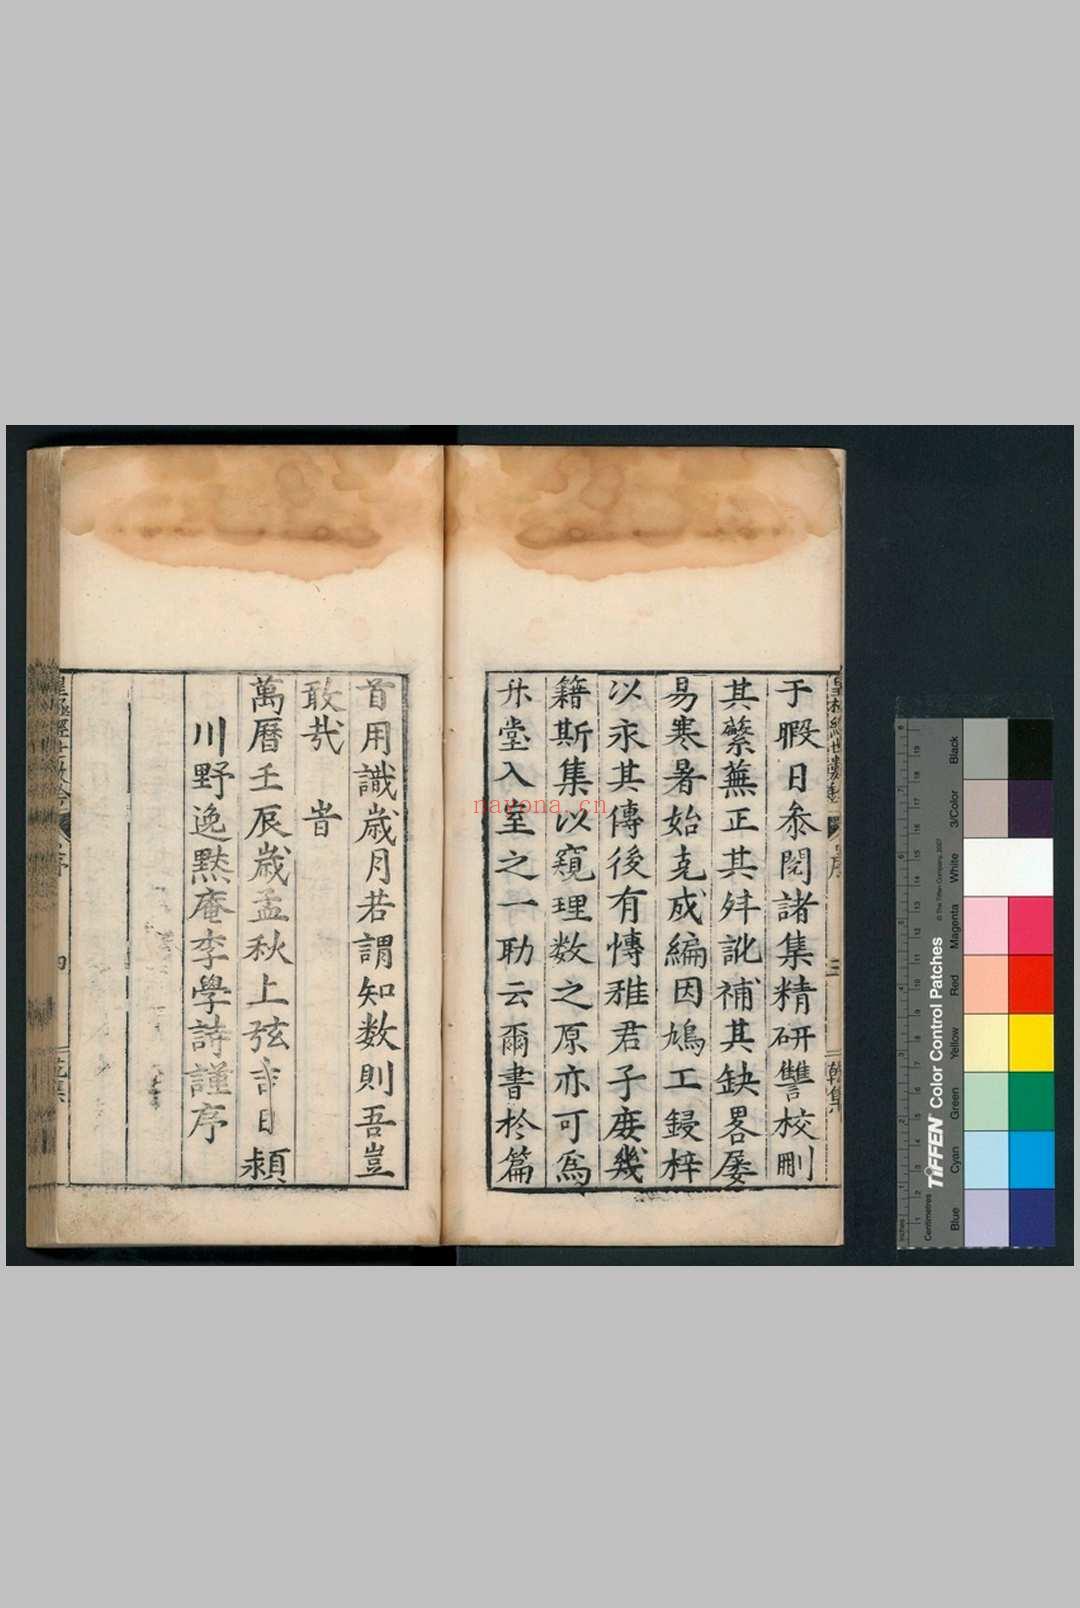 于暇日叅閱諸集精研讐校刪
其蘩蕪正其舛訛補其缺畧屡
易寒暑始克成編因鳩工鋟梓
以永其傳後有愽雅君子庻幾
籍斯集以窺理数之原亦可爲
升堂入室之一助云爾書於篇
首用識歳月若謂知数則吾豈
敢㢤 旹
萬曆壬辰歳孟秋上弦吉日潁
川野逸默庵李學詩謹序
乾集
nayona.cn
TIFFEN Color Control Patches
© The Tiffen Company, 2007
Inches
Centimetres
Blue
Cyan
Green
Yellow
Red
Magenta
White
3/Color
Black